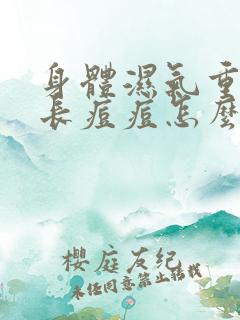 身體濕氣重
長痘痘怎麼
櫻庭友紀
未经同意禁止转载